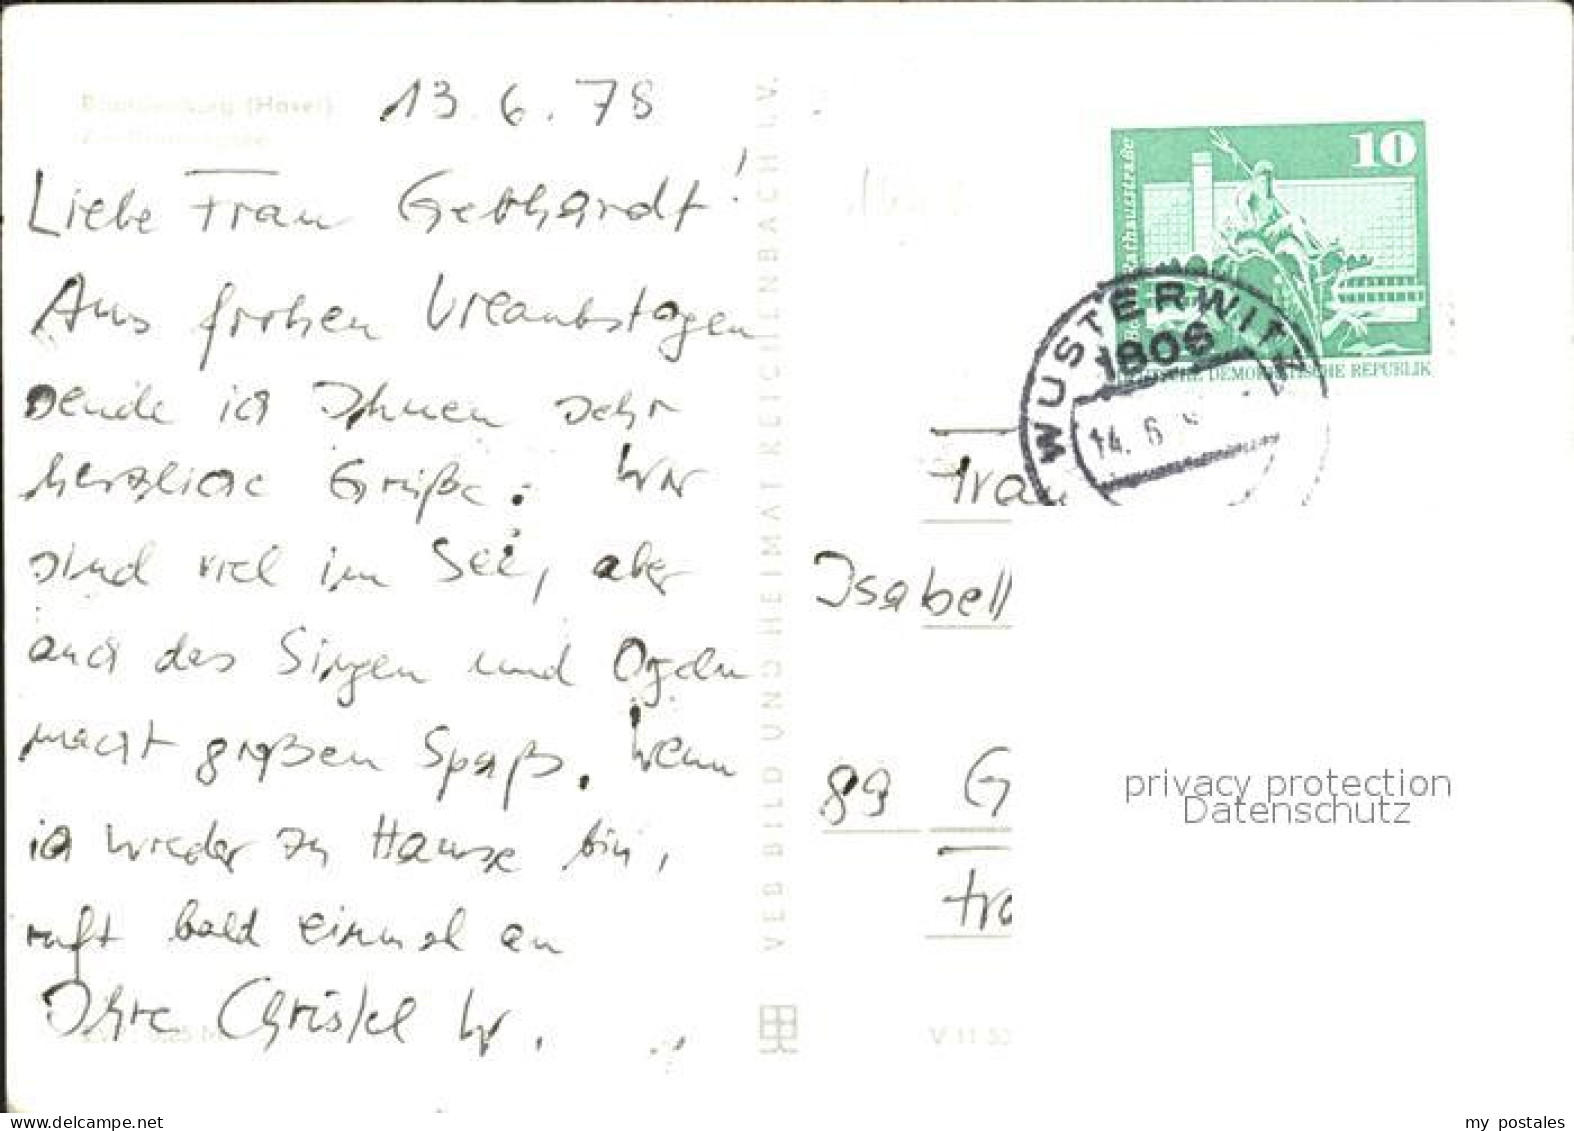 Brandenburg (Havel)
13. 6. 78
Liebe Frau Gebhardt!
Aus frohen Urlaubstagen
sende ich Ihnen sehr
herzliche Grüße. Wir
sind viel im See, aber
auch das Singen und Orgeln
macht großen Spaß. Wenn
ich wieder zu Hause bin,
ruft bald einmal an
Ihre Christel W.
VEB BILD UND HEIMAT REICHENBACH I. V.
10
Rathausstraße
DEMOKRATISCHE REPUBLIK
WUSTERWITZ
1806
14. 6
Frau
Isabell
89 G
V 11 50
privacy protection
Datenschutz
my postales